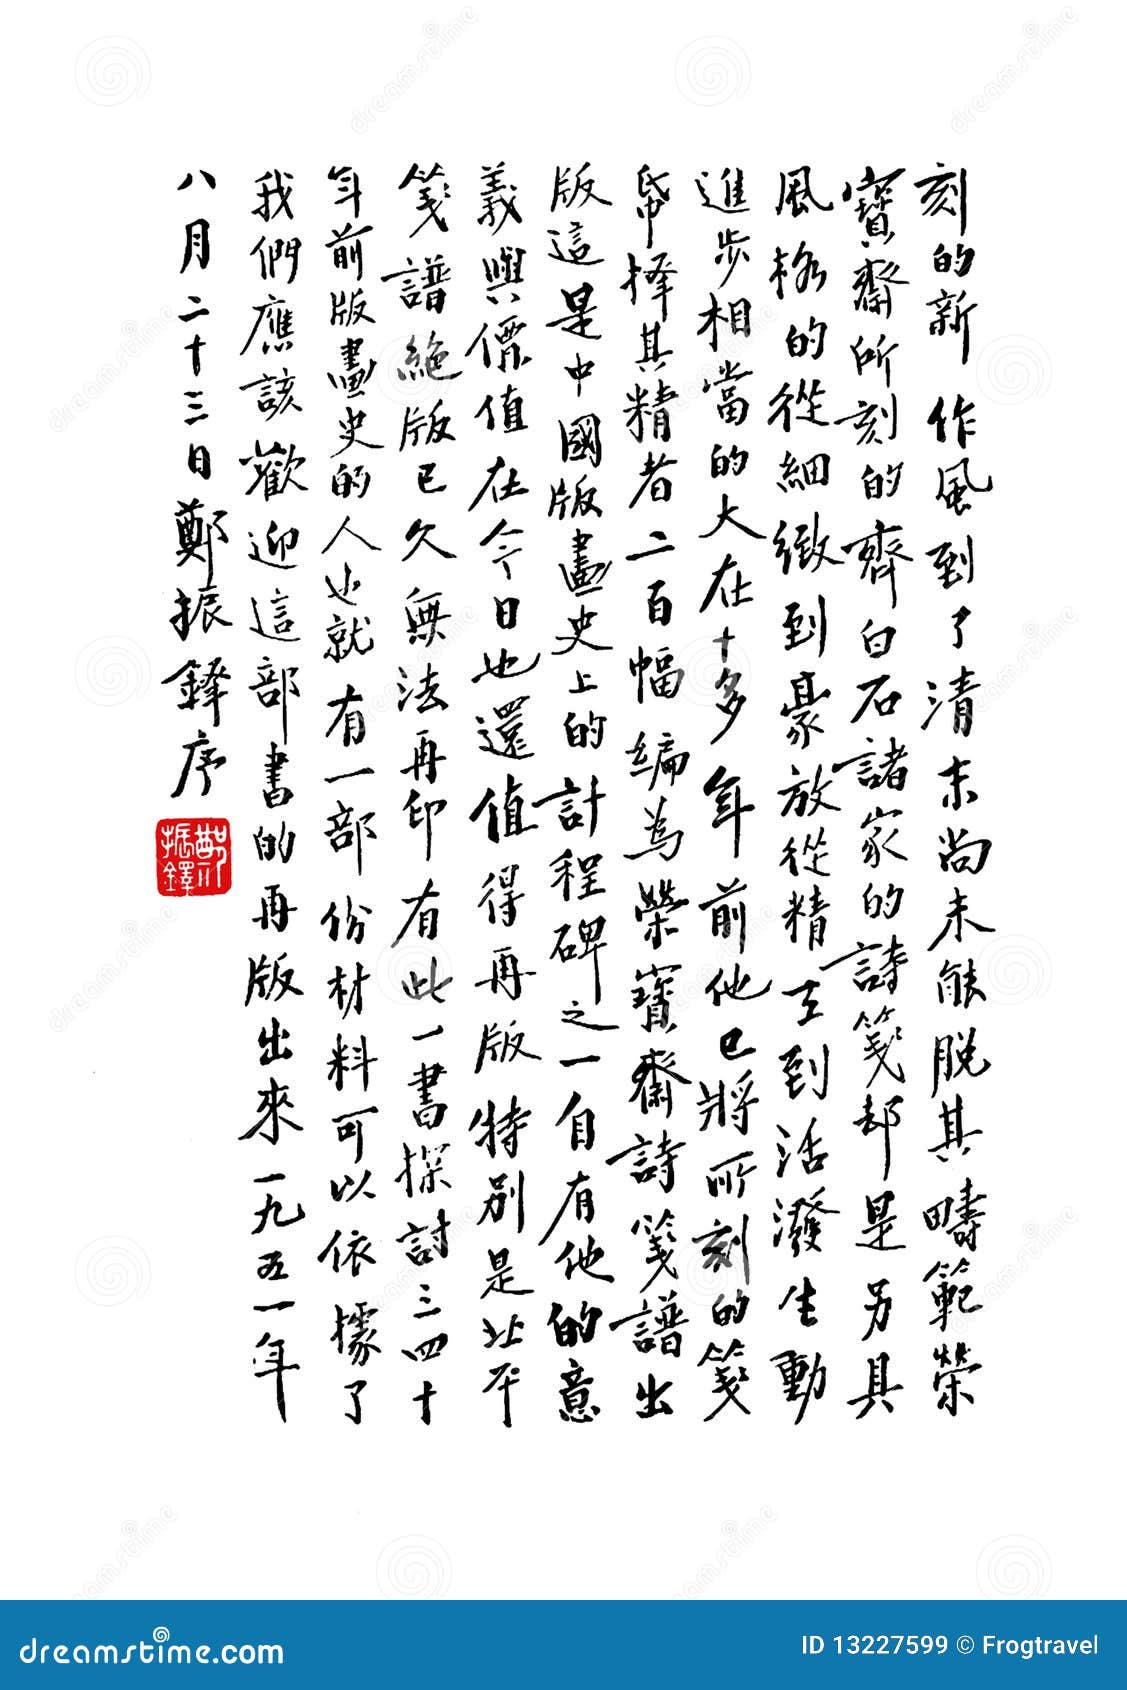 刻的新作風到了清末尚未能脫其疇範榮
寶齋所刻的齊白石諸家的詩箋却是另具
風格的從細緻到豪放從精工到活潑生動
進步相當的大在十多年前他已將所刻的箋
帋擇其精者二百幅編為榮寶齋詩箋譜出
版這是中國版畫史上的計程碑之一自有他的意
義與價值在今日也還值得再版特別是北平
箋譜絕版已久無法再印有此一書探討三四十
年前版畫史的人也就有一部份材料可以依據了
我們應該歡迎這部書的再版出來一九五一年
八月二十三日鄭振鐸序
鄭振鐸
dreamstime.com
ID 13227599 © Frogtravel